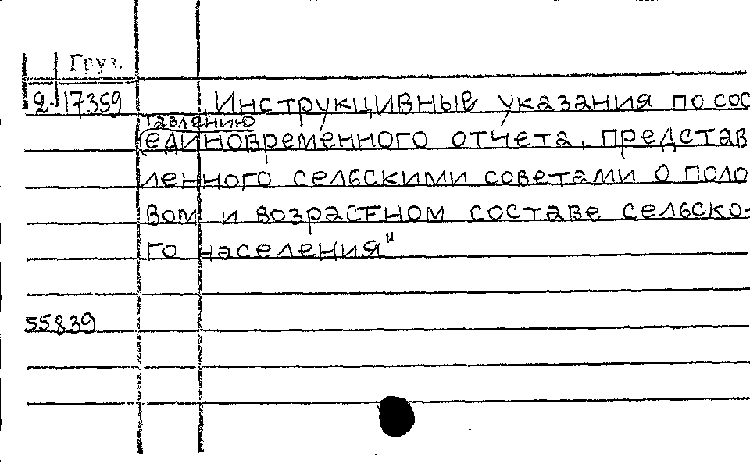 Груз.
2-17359 „Инструкцивные указания по сос
тавлению
единовременного отчета, представ
ленного сельскими советами о поло
вом и возрастном составе сельско-
го населения"
55839